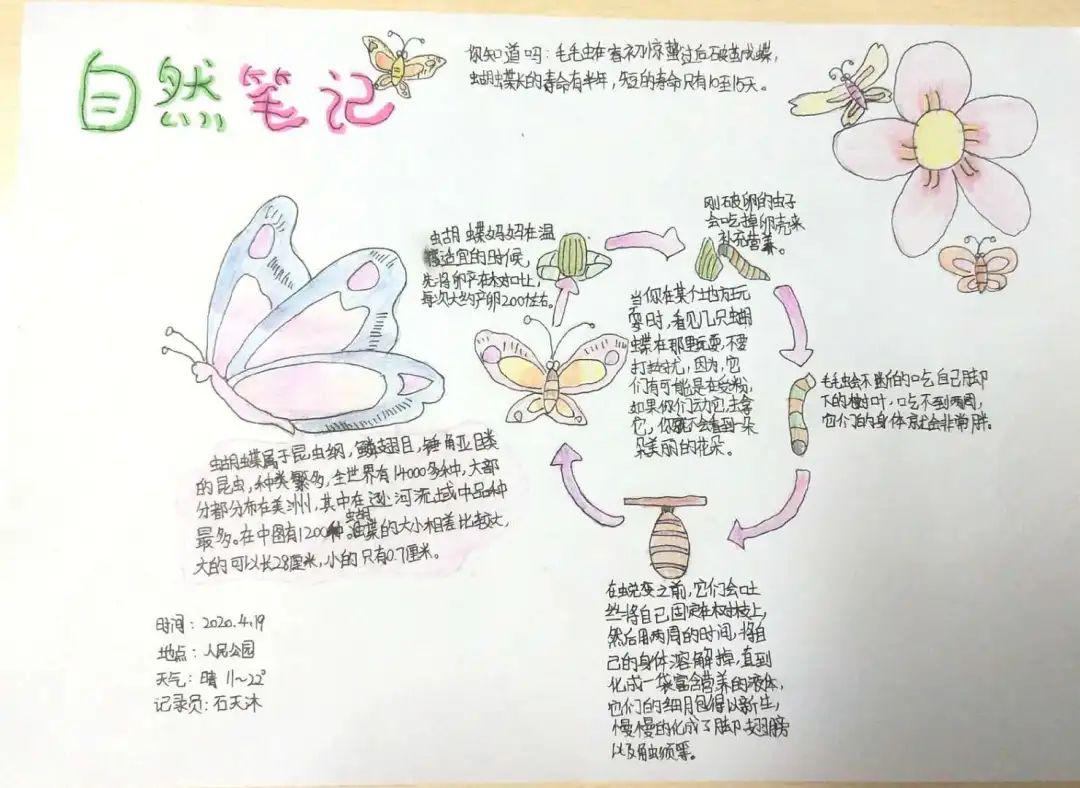 自然笔记
你知道吗：毛毛虫在春初惊蛰过后破茧成蝶，
蝴蝶长的寿命有半年，短的寿命只有10至15天。
蝴蝶妈妈在温
适宜的时候，
先将卵产在树叶上，
每次大约产卵200粒左右。
刚破卵的虫子
会吃掉卵壳来
补充营养。
当你在某个地方玩
耍时，看见几只蝴
蝶在那里玩耍，不要
打扰，因为，它
们有可能是在受粉，
如果你们动它，去拿
它，你就不会看到一朵
朵美丽的花朵。
毛毛虫会不断的吃自己脚
下的树叶，吃不到两周，
它们的身体就会非常胖。
在蜕变之前，它们会吐
丝将自己固定在树枝上，
然后用两周的时间，将自
己的身体溶解掉，直到
化成一袋富含营养的液体，
它们的细胞得以新生，
慢慢的化成了脚、翅膀
以及触须等。
蝴蝶属于昆虫纲，鳞翅目，锤角亚目类
的昆虫，种类繁多，全世界有14000多种，大部
分都分布在美洲，其中在逊河流域中品种
最多。在中国有1200种。蝴蝶的大小相差比较大，
大的可以长28厘米，小的只有0.7厘米。
时间：2020.4.19
地点：人民公园
天气：晴 11～22°
记录员：石天沐